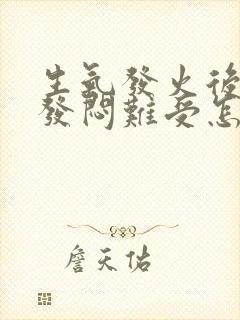 生氣發火後
發悶難受怎
詹天佑